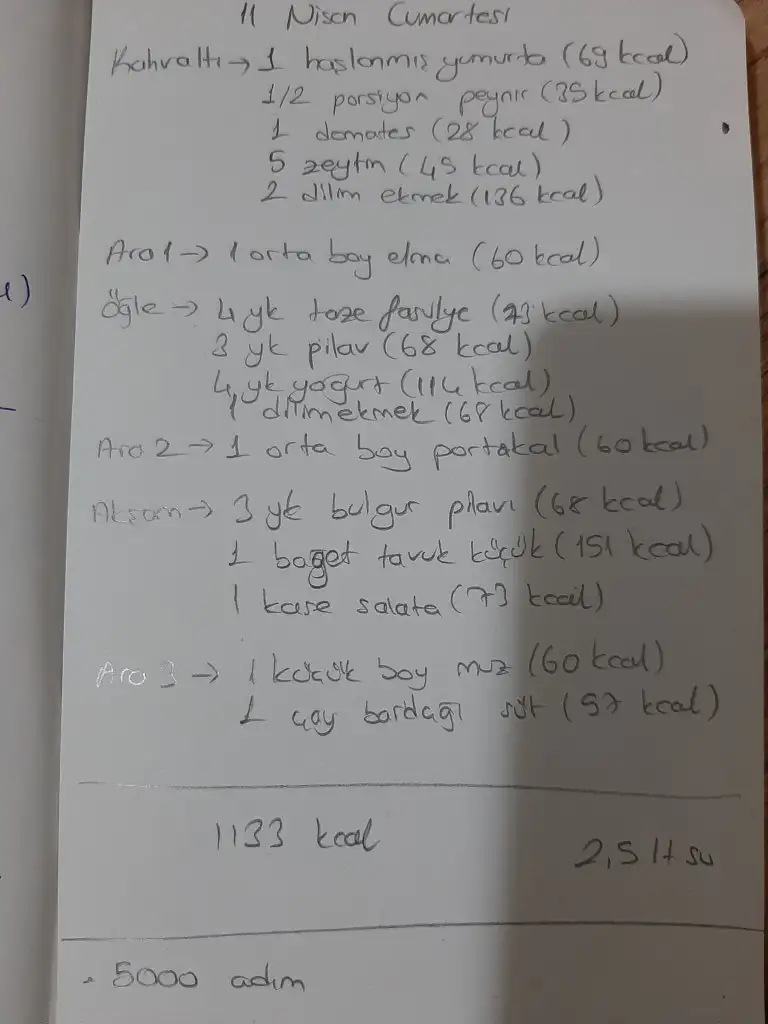 11 Nisan Cumartesi
Kahvaltı → 1 haşlanmış yumurta (69 kcal)
1/2 porsiyon peynir (35 kcal)
1 domates (28 kcal)
5 zeytin (45 kcal)
2 dilim ekmek (136 kcal)
Ara 1 → 1 orta boy elma (60 kcal)
Öğle → 4 yk taze fasulye (73 kcal)
3 yk pilav (68 kcal)
4 yk yoğurt (114 kcal)
1 dilim ekmek (68 kcal)
Ara 2 → 1 orta boy portakal (60 kcal)
Akşam → 3 yk bulgur pilavı (68 kcal)
1 baget tavuk küçük (151 kcal)
1 kase salata (73 kcal)
Ara 3 → 1 küçük boy muz (60 kcal)
1 çay bardağı süt (57 kcal)
1133 kcal
2,5 lt su
- 5000 adım